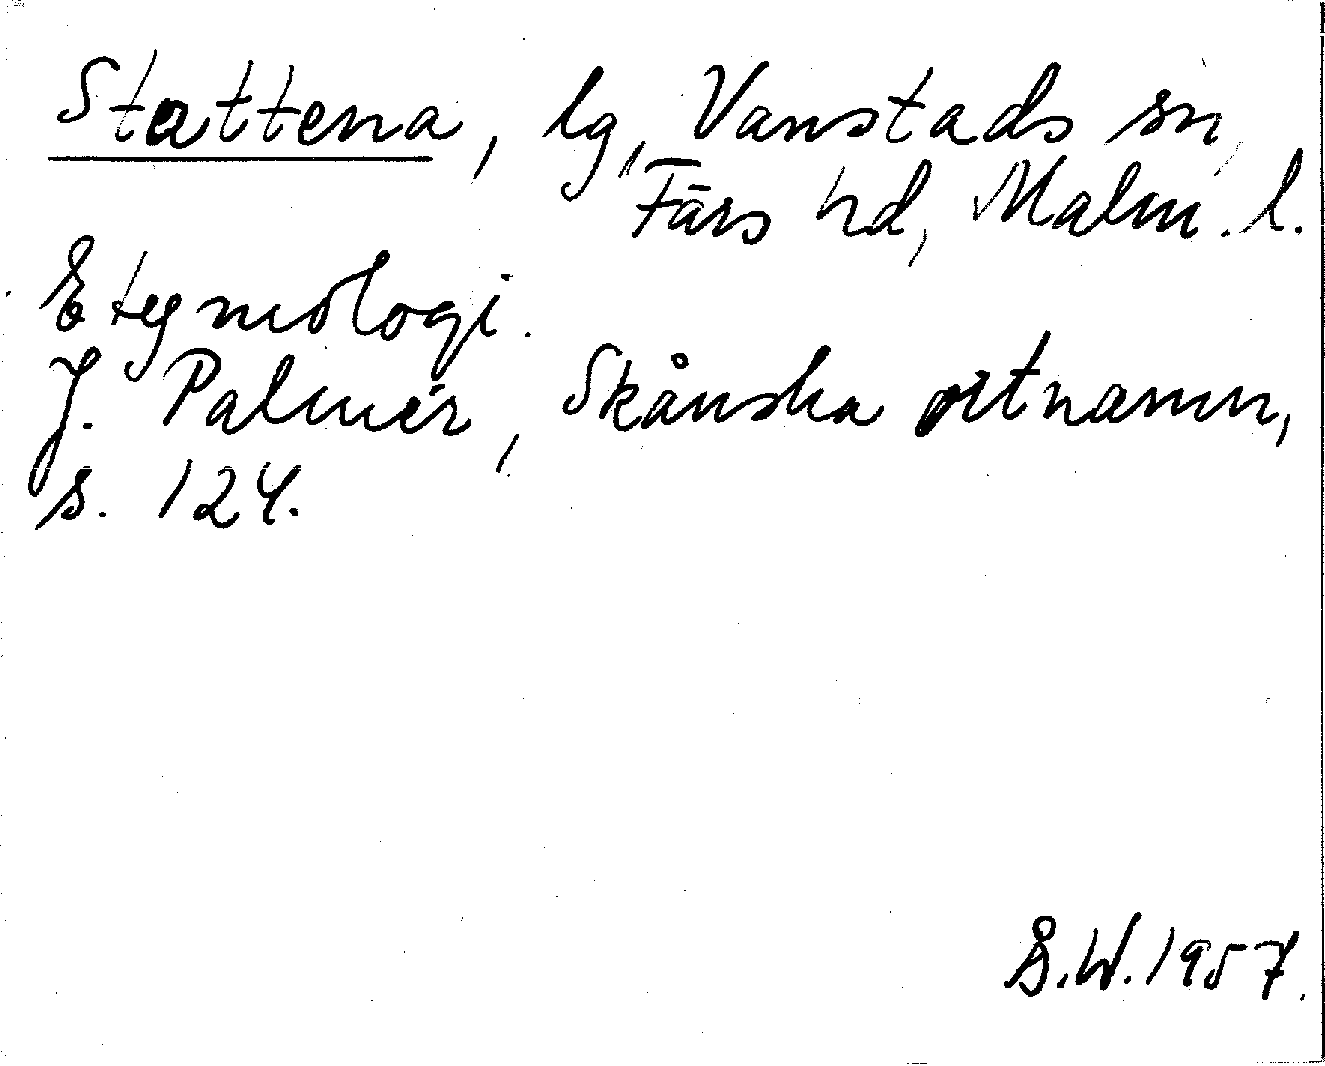 Stattena, lg, Vanstads sn,
Färs hd, Malm. l.
Etymologi.
J. Palmér, Skånska ortnamn,
s. 124.
Å.W. 1957.